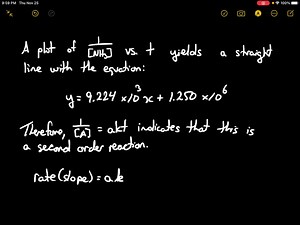 9:59 PM Thu Nov 25
100%
A plot of 1/[NH₃] vs. t yields a straight
line with the equation:
y = 9.224 x10³x + 1.250 x10⁶
Therefore, 1/[A] = akt indicates that this is
a second order reaction.
rate (slope) = ak